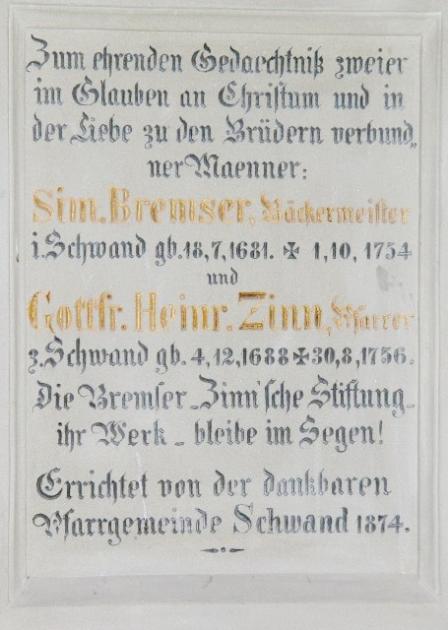 Zum ehrenden Gedaechtniß zweier
im Glauben an Christum und in
der Liebe zu den Brüdern verbund„
ner Maenner:
Sim. Bremser, Bäckermeister
i. Schwand gb. 18,7,1681. ✠ 1,10, 1754
und
Gottfr. Heinr. Zinn, Pfarrer
z. Schwand gb. 4,12,1688 ✠ 30,8,1756.
Die Bremser-Zinn'sche Stiftung-
ihr Werk - bleibe im Segen!
Errichtet von der dankbaren
Pfarrgemeinde Schwand 1874.